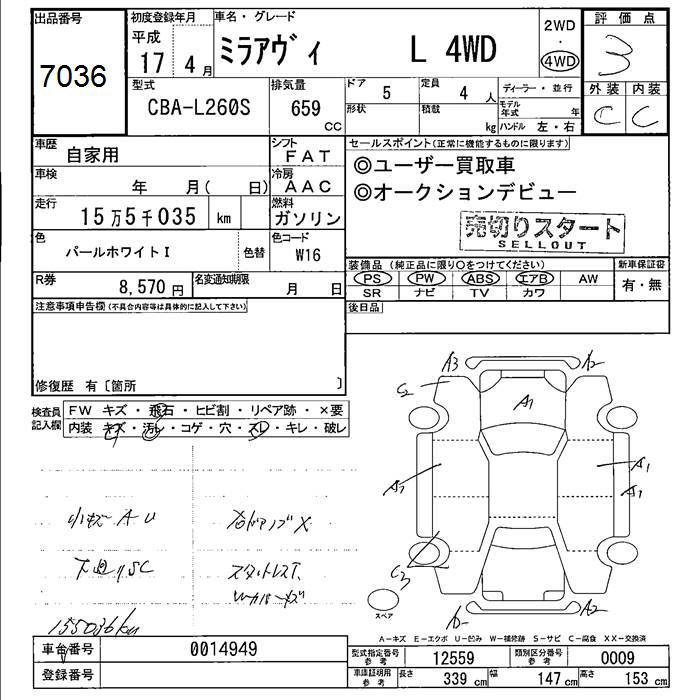 出品番号
7036
初度登録年月
平成
17 4月
車名・グレード
ミラアヴィ L 4WD
2WD
・
4WD
評価点
3
外装 内装
C C
型式
CBA-L260S
排気量
659
CC
ドア 5
定員 4 人
形状
積載 kg
ディーラー・並行
モデル年式 年
ハンドル 左・右
車歴 自家用
シフト FAT
車検 年 月( 日)
冷房 AAC
走行 15万5千035 km
燃料 ガソリン
色 パールホワイトI 色替
色コード W16
R券 8,570円
名変通知期限 月 日
セールスポイント(正常に機能するものに限ります)
◎ユーザー買取車
◎オークションデビュー
売切りスタート
SELLOUT
装備品(純正品に限り○をつけてください)
PS PW ABS エアB AW
SR ナビ TV カワ
新車保証書
有・無
後日品
注意事項申告欄(不具合内容等は具体的に記入して下さい)
修復歴 有〔箇所 〕
検査員記入欄
FW キズ・飛石・ヒビ割・リペア跡・×要
内装 キズ・汚れ・コゲ・穴・スレ・キレ・破レ
小キズ A U
下廻りSC
155036km
A3 A2
C2
A1
A1 A1
A1
C3
A2
スペア
A-キズ E-エクボ U-凹み W-補修跡 S-サビ C-腐食 XX-交換済
車台番号 0014949
登録番号
型式指定番号 参考 12559
類別区分番号 参考 0009
車庫証明用 参考 長さ 339cm 幅 147cm 高さ 153cm